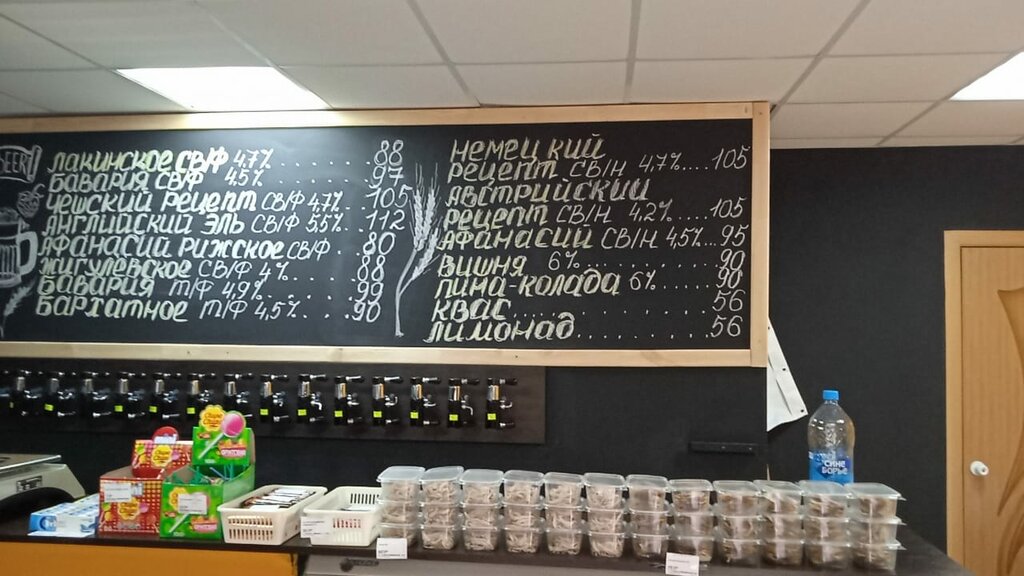 BEER
ЛАКИНСКОЕ СВ/Ф 4,7% 88
БАВАРИЯ СВ/Ф 4,5% 97
ЧЕШСКИЙ РЕЦЕПТ СВ/Ф 4,7% 105
АНГЛИЙСКИЙ ЭЛЬ СВ/Ф 5,5% 112
АФАНАСИЙ РИЖСКОЕ СВ/Ф 80
ЖИГУЛЕВСКОЕ СВ/Ф 4% 88
БАВАРИЯ Т/Ф 4,9% 99
БАРХАТНОЕ Т/Ф 4,5% 90
НЕМЕЦКИЙ
РЕЦЕПТ СВ/Н 4,7% 105
АВСТРИЙСКИЙ
РЕЦЕПТ СВ/Н 4,2% 105
АФАНАСИЙ СВ/Н 4,5% 95
ВИШНЯ 6% 90
ПИНА-КОЛАДА 6% 90
КВАС 56
ЛИМОНАД 56
Chupa Chups
СИНЕ
БОРЬЕ